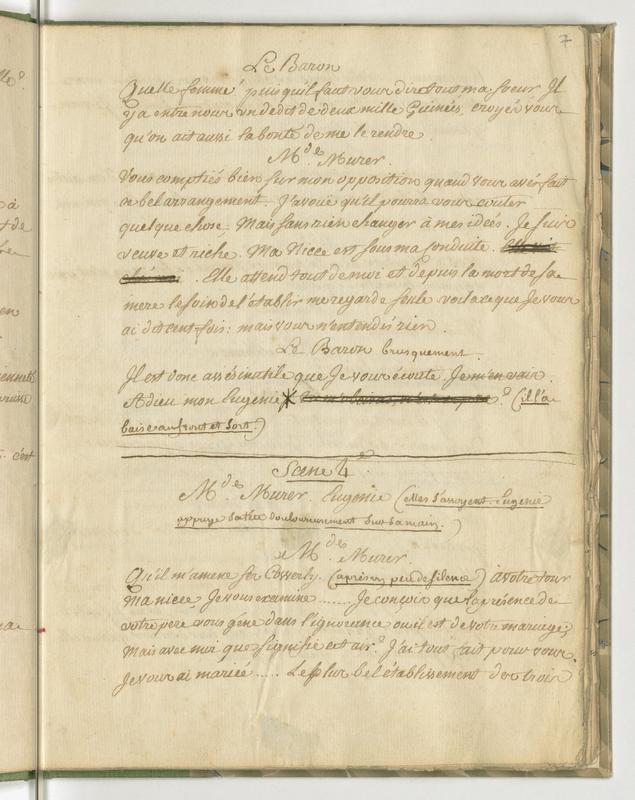 7
Le Baron
Quelle femme! puisqu'il faut vous dire tout ma soeur Il
y a entre nous un dedit de deux mille Guinées, croyés vous
qu'on ait aussi la bonté de me le rendre.
M.de Murer.
Vous comptiés bien sur mon opposition quand vous avés fait
ce bel arrangement. J'avoüe qu'il pourra vous couter
quelque chose. Mais sans rien changer à mes ideés. Je suis
veuve et riche. Ma Niece est sous ma conduite.
. Elle attend tout de moi et depuis la mort de sa
mere le soin de l'établir me regarde seule. voila ce que Je vous
ai dit cent fois: mais vous n'entendés rien.
Le Baron brusquement.
Il est donc assés inutile que Je vous écoute. Je m'en vais.
Adieu mon Eugenie (il la
baise au front et sort.)
Scene 4e
M.de Murer. Eugenie (elles s'assoyent. Eugenie
appuye sa tête douloureusement sur sa main.)
M.de Murer
Qu'il m'amene ser Cowerly. (après un peu de silence) à votre tour
Ma niece, Je vous examine....... Je conçois que la présence de
votre pere vous gêne dans l'ignorance ou il est de votre mariage;
Mais avec moi que signifie cet air? J'ai tout fait pour vous.
Je vous ai mariée..... Le plus bel établissement des trois